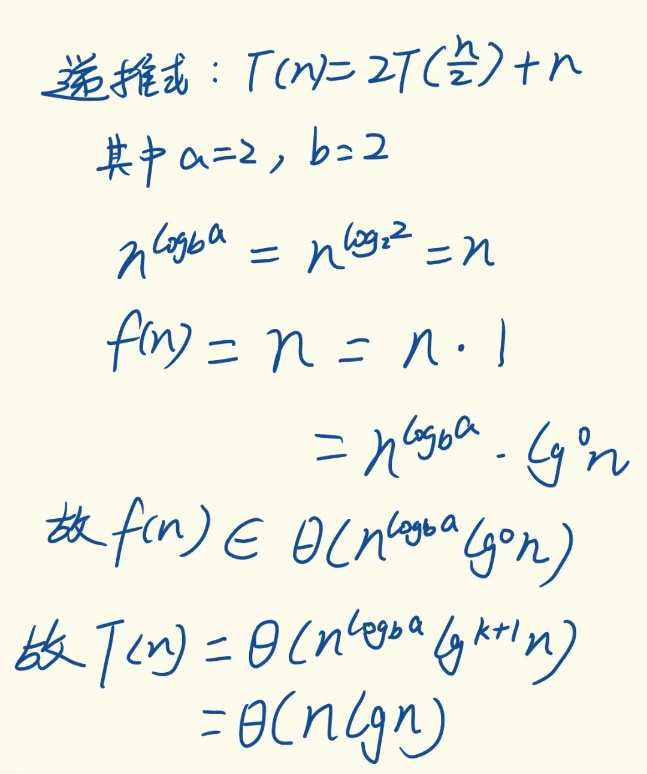 递推式：T(n)=2T(n/2)+n
其中 a=2，b=2
n^{log_b a} = n^{log_2 2} = n
f(n) = n = n · 1
= n^{log_b a} · lg^0 n
故 f(n) ∈ θ(n^{log_b a} lg^0 n)
故 T(n) = θ(n^{log_b a} lg^{k+1} n)
= θ(n lg n)